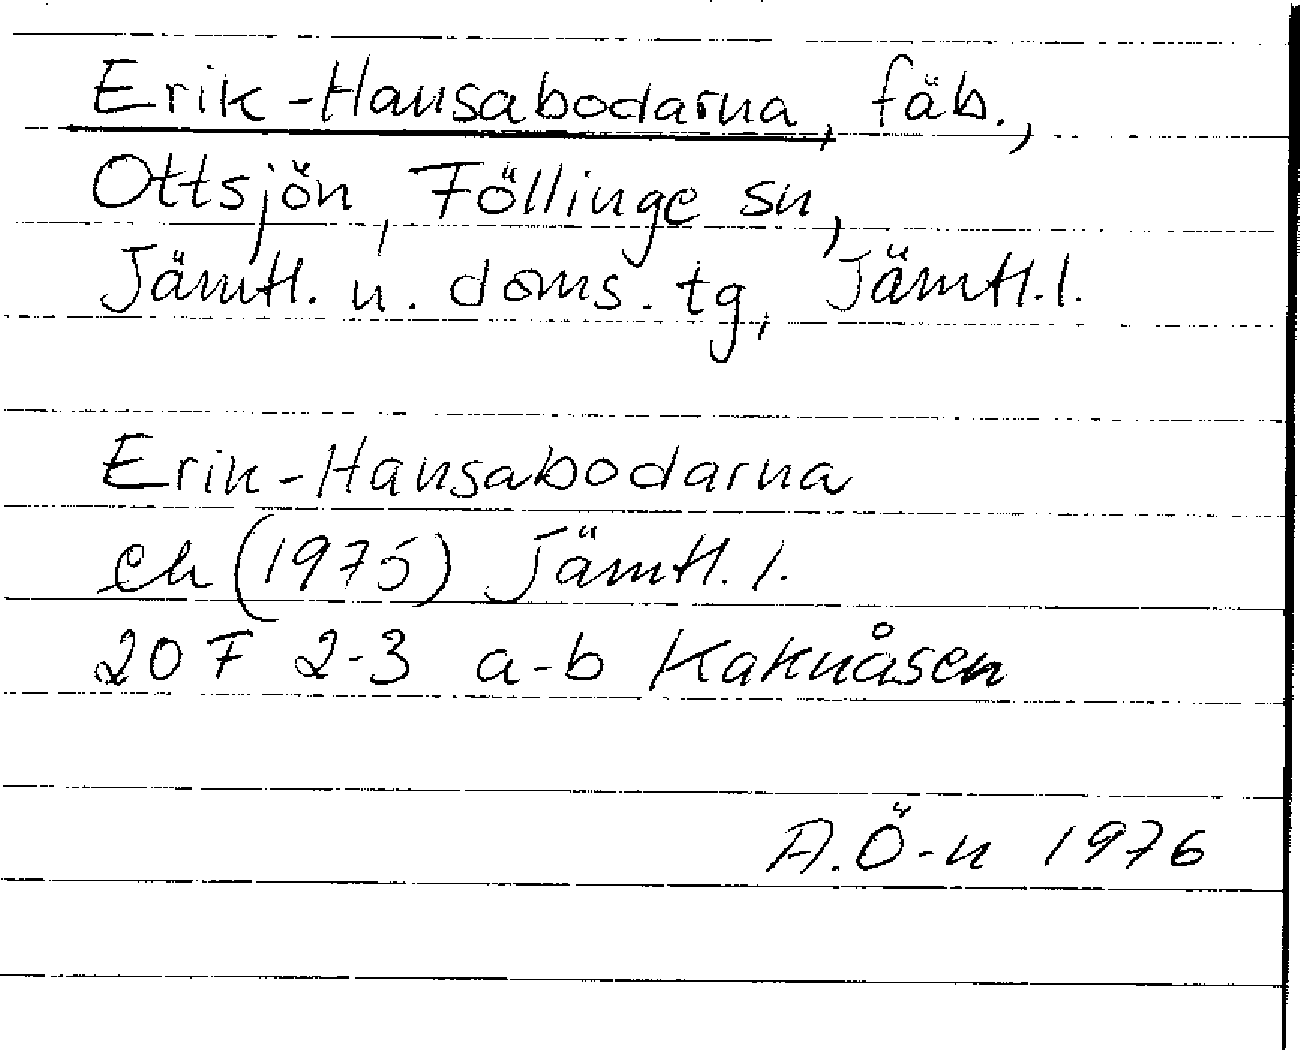 Erik-Hansabodarna, fäb.,
Ottsjön, Föllinge sn,
Jämtl. n. doms. tg, Jämtl.l.
Erik-Hansabodarna
ek (1975) Jämtl. l.
20 F 2-3 a-b Kaknåsen
A.Ö-n 1976